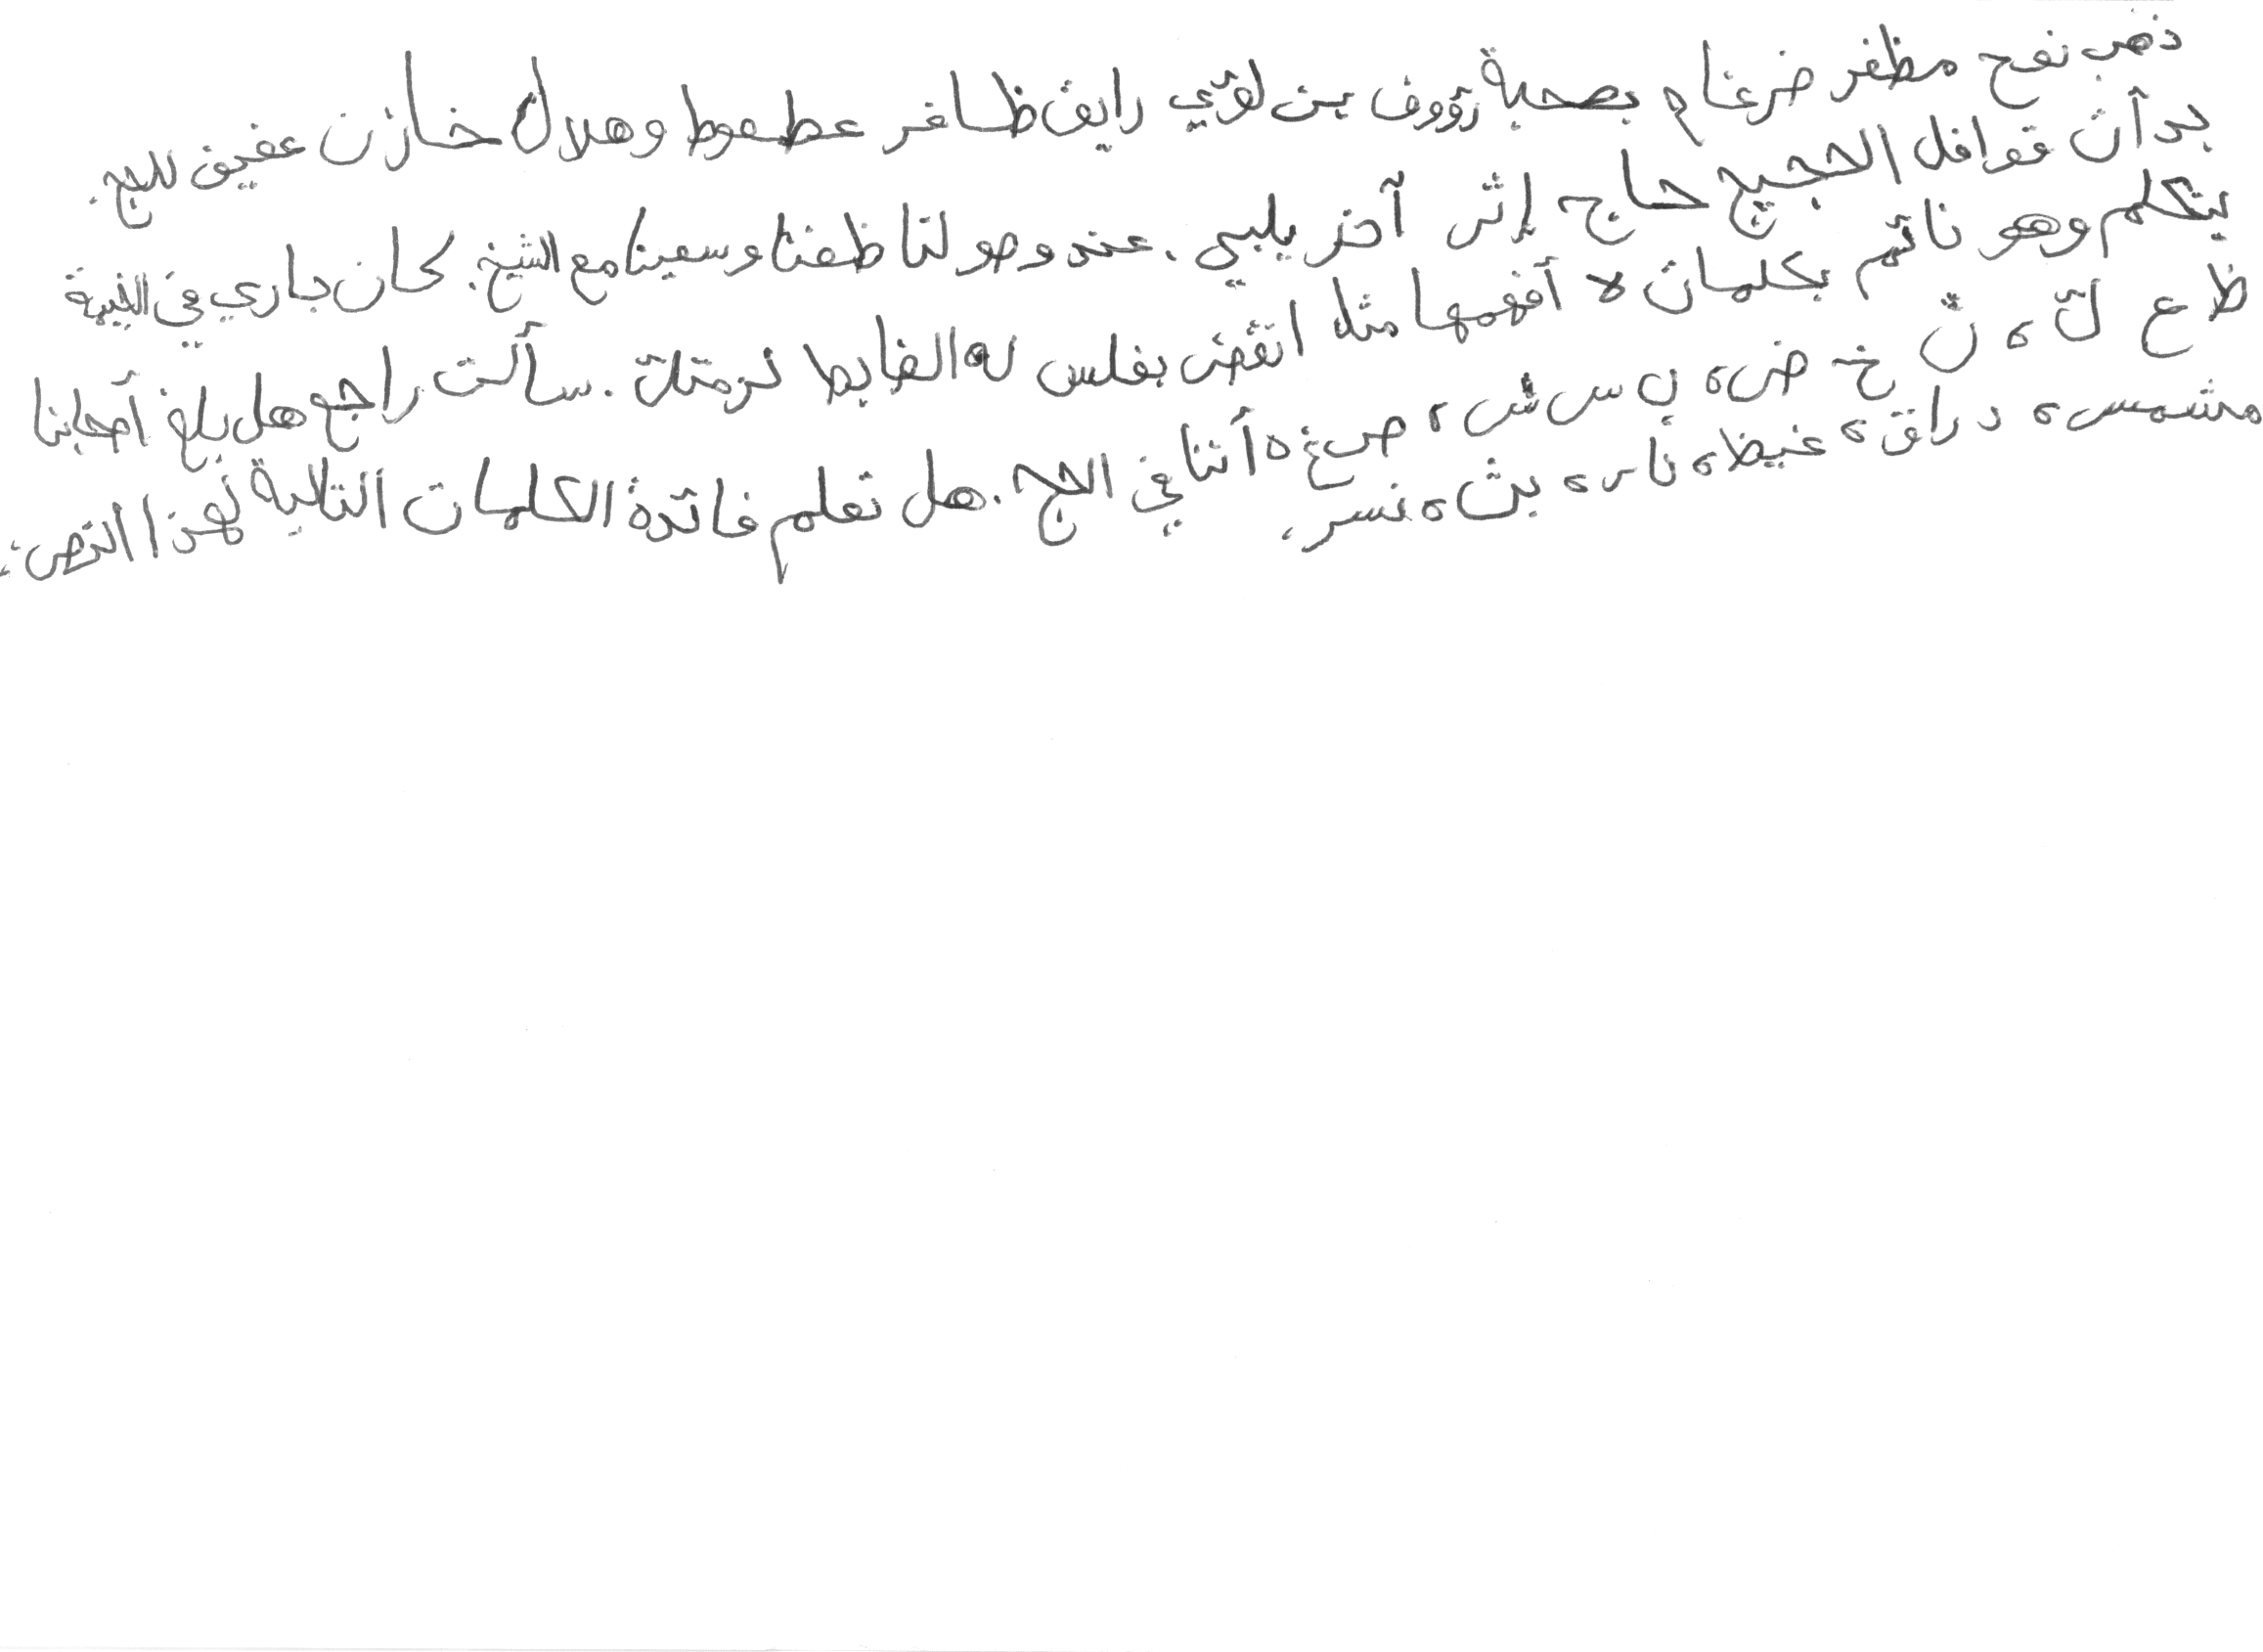 ذهب نوح مظفر ضرغام بصحبة رؤوف بن لؤي رايق ظافر عطعوط وهلال خازن عفيف للحج.
بدأت قوافل الحجيج حاج إثر آخر يلبي. عند وصولنا طفنا وسعينا مع الشيخ. كان جاري في الخيمة
يتكلم وهو نائم بكلمات لا أفهمها مثل انقض بفلس له الغابط لزمتك. سألت راجح هل بلغ أحبابنا
ظ ع ك، ث خ ض، ب س ش، ص غ، أننا في الحج. هل تعلم فائدة الكلمات التالية لهذا النص:
مشمس، دراق، غيظ، ناء، بث، نسر.